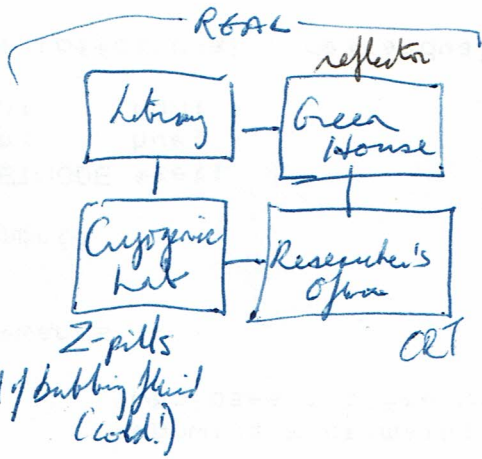 REAL
reflector
Library
Green
House
Cryogenic
Lab
Researcher's
Office
Z-pills
CRT
of bubbling fluid
(cold!)